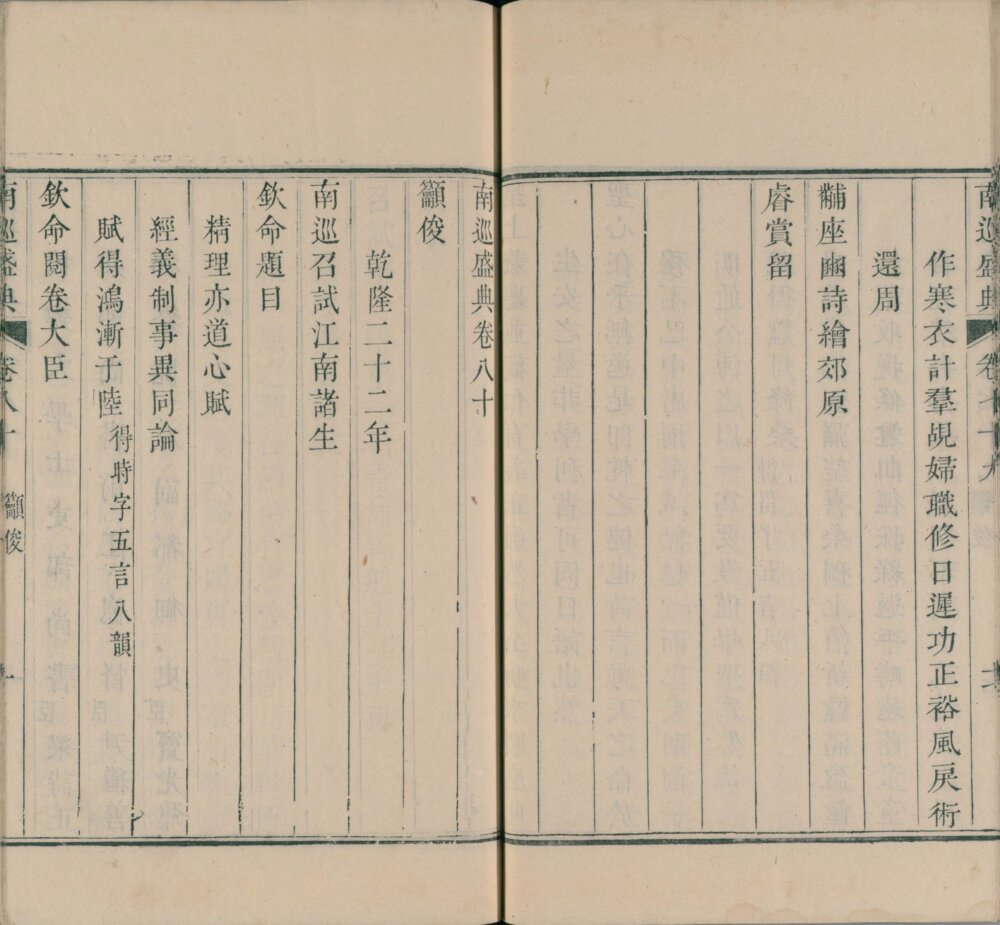 南巡盛典 卷七十九 
作寒衣計羣覘婦職修日遲功正裕風戾術
還周
黼座豳詩繪郊原
睿賞留
南巡盛典卷八十
籲俊
乾隆二十二年
南巡召試江南諸生
欽命題目
精理亦道心賦
經義制事異同論
賦得鴻漸于陸得時字五言八韻
欽命閱卷大臣
南巡盛典 卷八十 籲俊 一